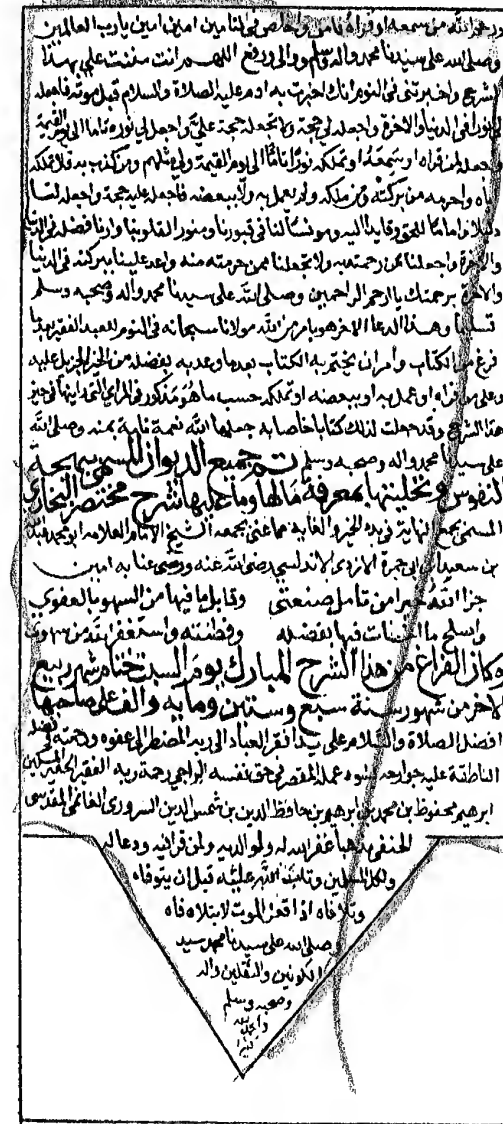 ورحم الله من سمعه او قراه ثامن واخلص في التامين امين امين يا رب العالمين
وصلى الله على سيدنا محمد واله وسلم ورفع اللهم انت مننت علي بهذا
الشرح واخبرتني في النوم انك اخبرت به ادم عليه الصلاة والسلام قبل موته فاجعله
نورا في الدنيا والاخرة واجعله لي حجة ولا تجعله حجة علي واجعل لي نوره تاما الى يوم القيمة
واجعله لمن قراه او سمعه او تملكه نورا تاما الى يوم القيمة ولي مثلهم ومن كذب به فلا تملكه
اياه واحرمه من بركته ومن ملكه ولم يعمل به ولا ببعضه فاجعله عليه حجة واجعله لنا
دليلا واماما للحق وقايدا اليه ومونسا لنا في قبورنا ومنور القلوبنا وارنا فضله في الدنيا
والاخرة واجعلنا ممن رحمته به ولا تجعلنا ممن حرمته منه واعد علينا بركته في الدنيا
والاخرة برحمتك يا ارحم الراحمين وصلى الله على سيدنا محمد واله وصحبه وسلم
تسليما وهذا الدعا الاخر هو بامر من الله مولانا سبحانه في النوم للعبد الفقير لما
فرغ من الكتاب وامر ان يختم به الكتاب بعدما وعد به بفضله من الخير الجزيل عليه
وعلى من قراه او عمل به او ببعضه او تملكه حسب ما هو مذكور في المراي التي رايتها في حق
هذا الشرح وقد جعلت لذلك كتابا خاصا به جعلها الله نعمة تامة بمنه وصلى الله
على سيدنا محمد واله وصحبه وسلم تم جميع الديوان المسمى ببهجة
النفوس وتحليتها بمعرفة مالها وما عليها شرح مختصر البخاري
المسمى بجمع النهاية في بدء الخير والغاية مما عني بجمعه الشيخ الامام العلامه ابو محمد عبد الله
بن سعيد بن ابي جمرة الازدي الاندلسي رضي الله عنه ورضي عنا به امين
جزا الله خيرا من تامل صنعتي وقابل ما فيها من السهو بالعفو
واصلح ما اخطات فيها بفضله وفطنته واستغفر الله من سهوي
وكان الفراغ من هذا الشرح المبارك يوم السبت ختام شهر ربيع
الاخر من شهور سنة سبع وستين ومايه والف على صاحبها
افضل الصلاة والسلام على يد افقر العباد الى ربه المضطر الى عفوه ورحمته
الناطقة عليه جوارحه بسوء عمله المقصر في حق نفسه الراجي رحمة ربه الفقير الحقير المسكين
ابرهيم محفوظ بن محمد بن ابرهيم بن حافظ الدين بن شمس الدين السروري الغانمي المقدسي
الحنفي مذهبا غفر الله له ولوالديه ولمن قرا فيه ودعا له
ولكل المسلمين وتاب الله عليه قبل ان يتوفاه
وتلافاه اذا
وصلى الله على سيدنا محمد سيد
الكونين والثقلين واله
وصحبه وسلم